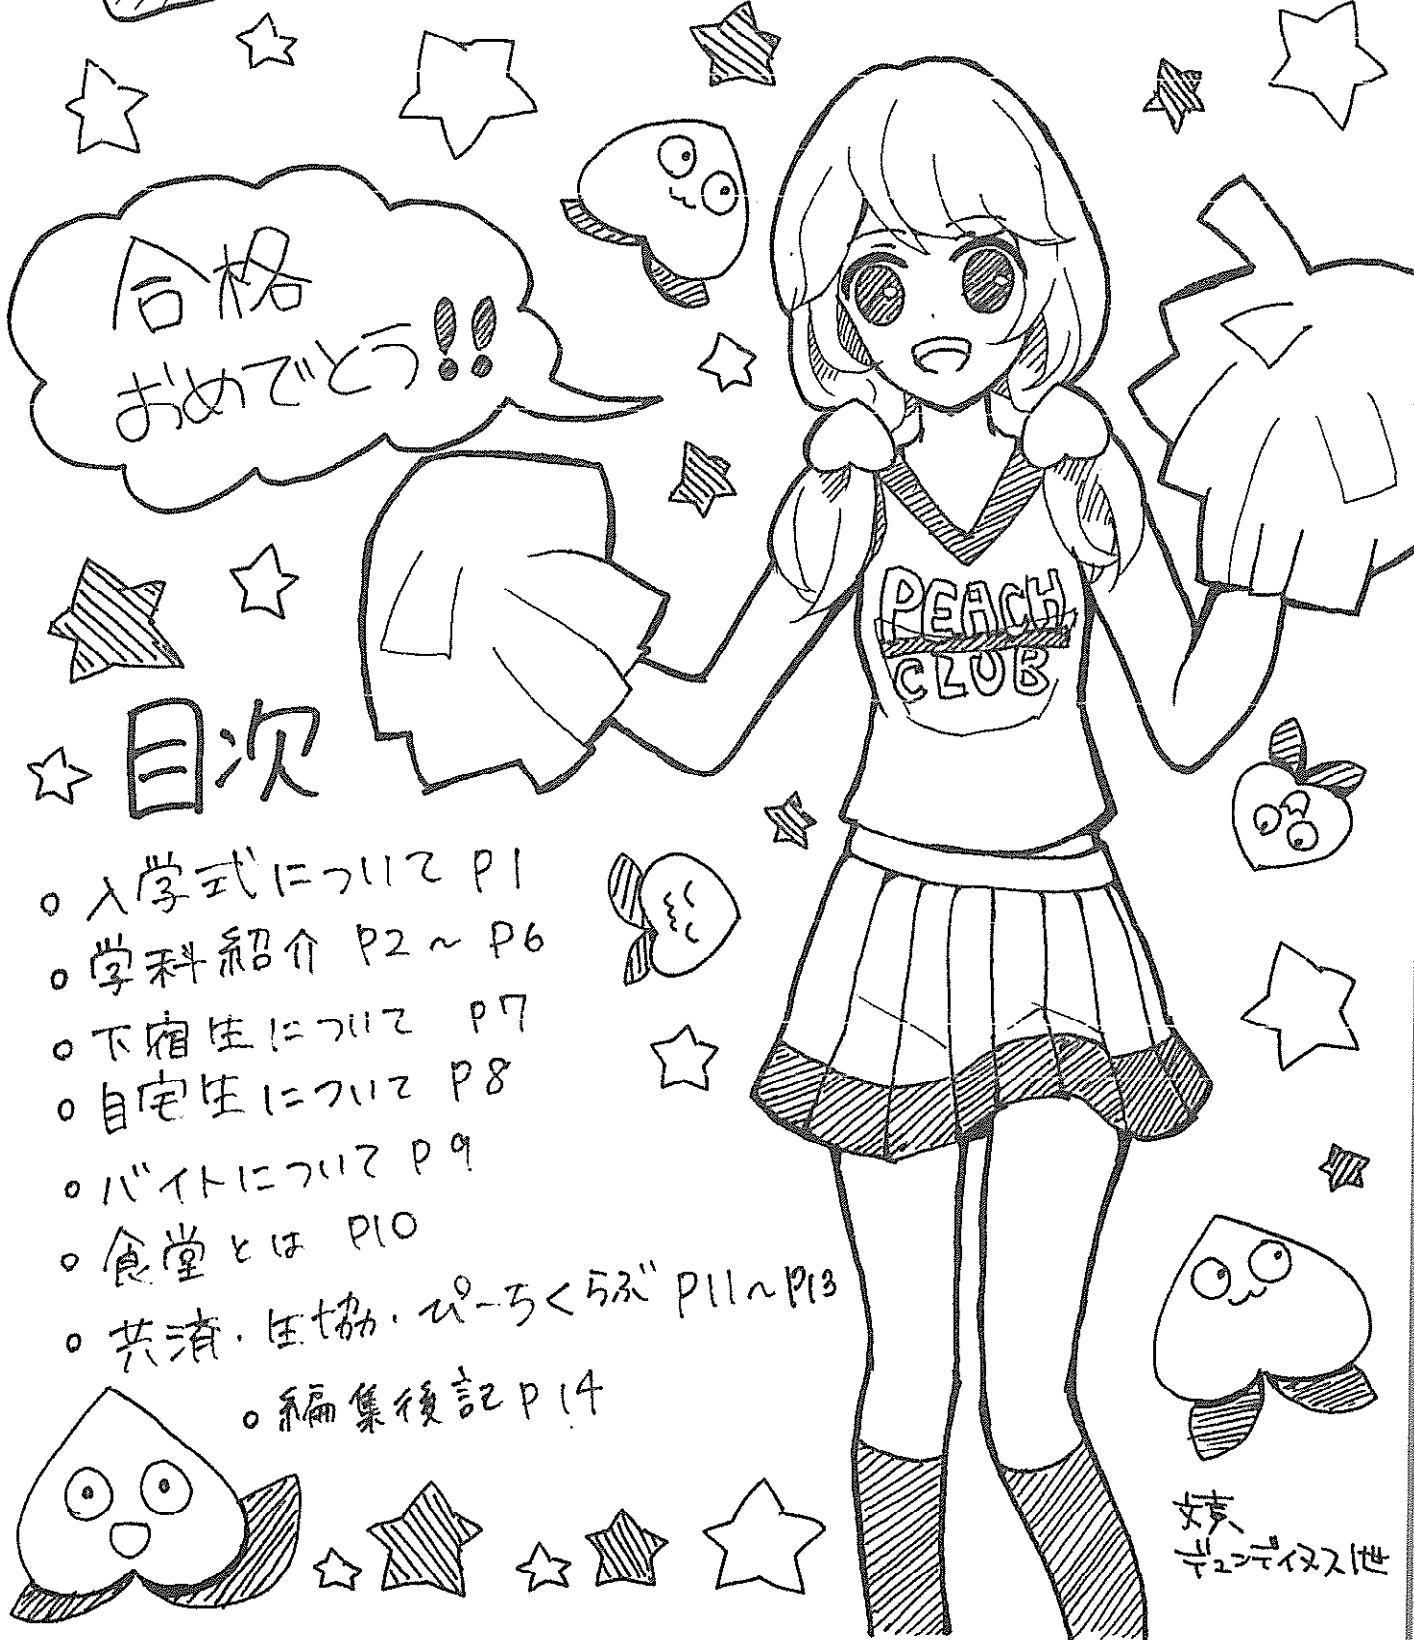 合格
おめでとう!!
PEACH
CLUB
目次
○ 入学式について P1
○ 学科紹介 P2～P6
○ 下宿生について P7
○ 自宅生について P8
○ バイトについて P9
○ 食堂とは P10
○ 共済・生協・ぴーちくらぶ P11～P13
○ 編集後記 P14